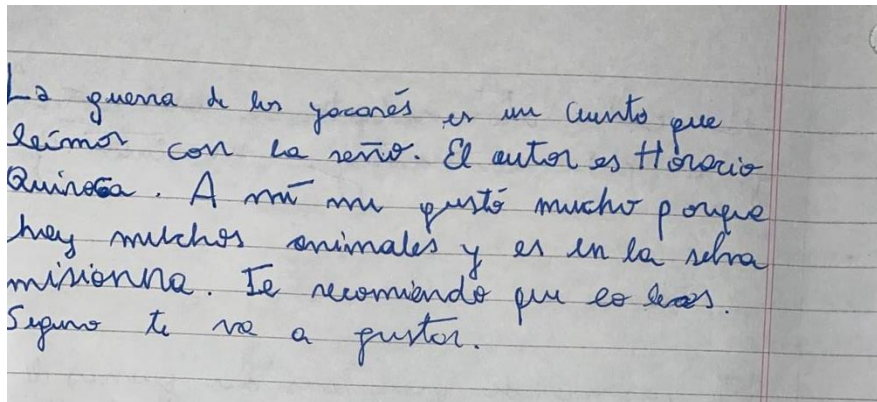 La guerra de los yacarés es un cuento que
leímos con la seño. El autor es Horacio
Quiroga. A mí me gustó mucho porque
hay muchos animales y es en la selva
misionna. Te recomiendo que lo leas.
Seguro te va a gustar.